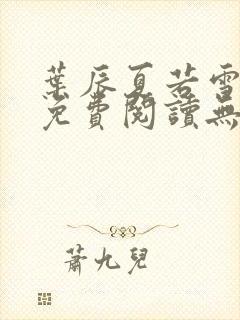 葉辰夏若雪
免費閱讀無
蕭九兒